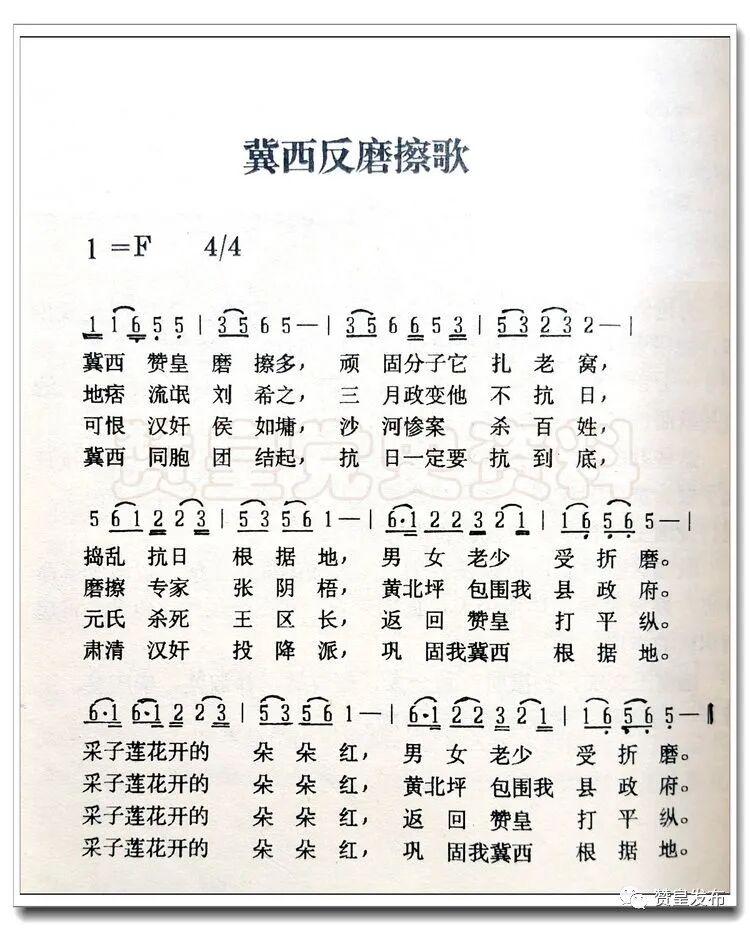 冀西反磨擦歌
1=F 4/4
1 1 6 5 5 | 3 5 6 5 — | 3 5 6 6 5 3 | 5 3 2 3 2 — |
冀西 赞皇 磨 擦多, 顽 固分子它 扎 老 窝,
地痞 流氓 刘 希之, 三 月政变他 不 抗 日,
可恨 汉奸 侯 如墉, 沙 河惨案 杀 百 姓,
冀西 同胞 团 结起, 抗 日一定要 抗 到 底,
赞皇党史资料
5 6 1 2 2 3 | 5 3 5 6 1 — | 6·1 2 2 3 2 1 | 1 6 5 6 5 — |
捣乱 抗日 根 据 地, 男 女 老少 受 折 磨。
磨擦 专家 张 阴 梧, 黄北坪 包围我 县 政 府。
元氏 杀死 王 区 长, 返 回 赞皇 打 平 纵。
肃清 汉奸 投 降 派, 巩 固我冀西 根 据 地。
6·1 6·1 2 2 3 | 5 3 5 6 1 — | 6·1 2 2 3 2 1 | 1 6 5 6 5 — ‖
采子莲花开的 朵 朵 红, 男 女 老少 受 折 磨。
采子莲花开的 朵 朵 红, 黄北坪 包围我 县 政 府。
采子莲花开的 朵 朵 红, 返 回 赞皇 打 平 纵。
采子莲花开的 朵 朵 红, 巩 固我冀西 根 据 地。
赞皇发布